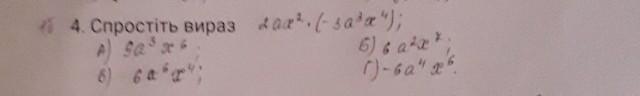 4. Спростіть вираз 2ax²·(-3a³x⁴);
А) 5a³x⁶; Б) 6a²x⁷;
В) 6a⁶x⁴; Г) -6a⁴x⁶.